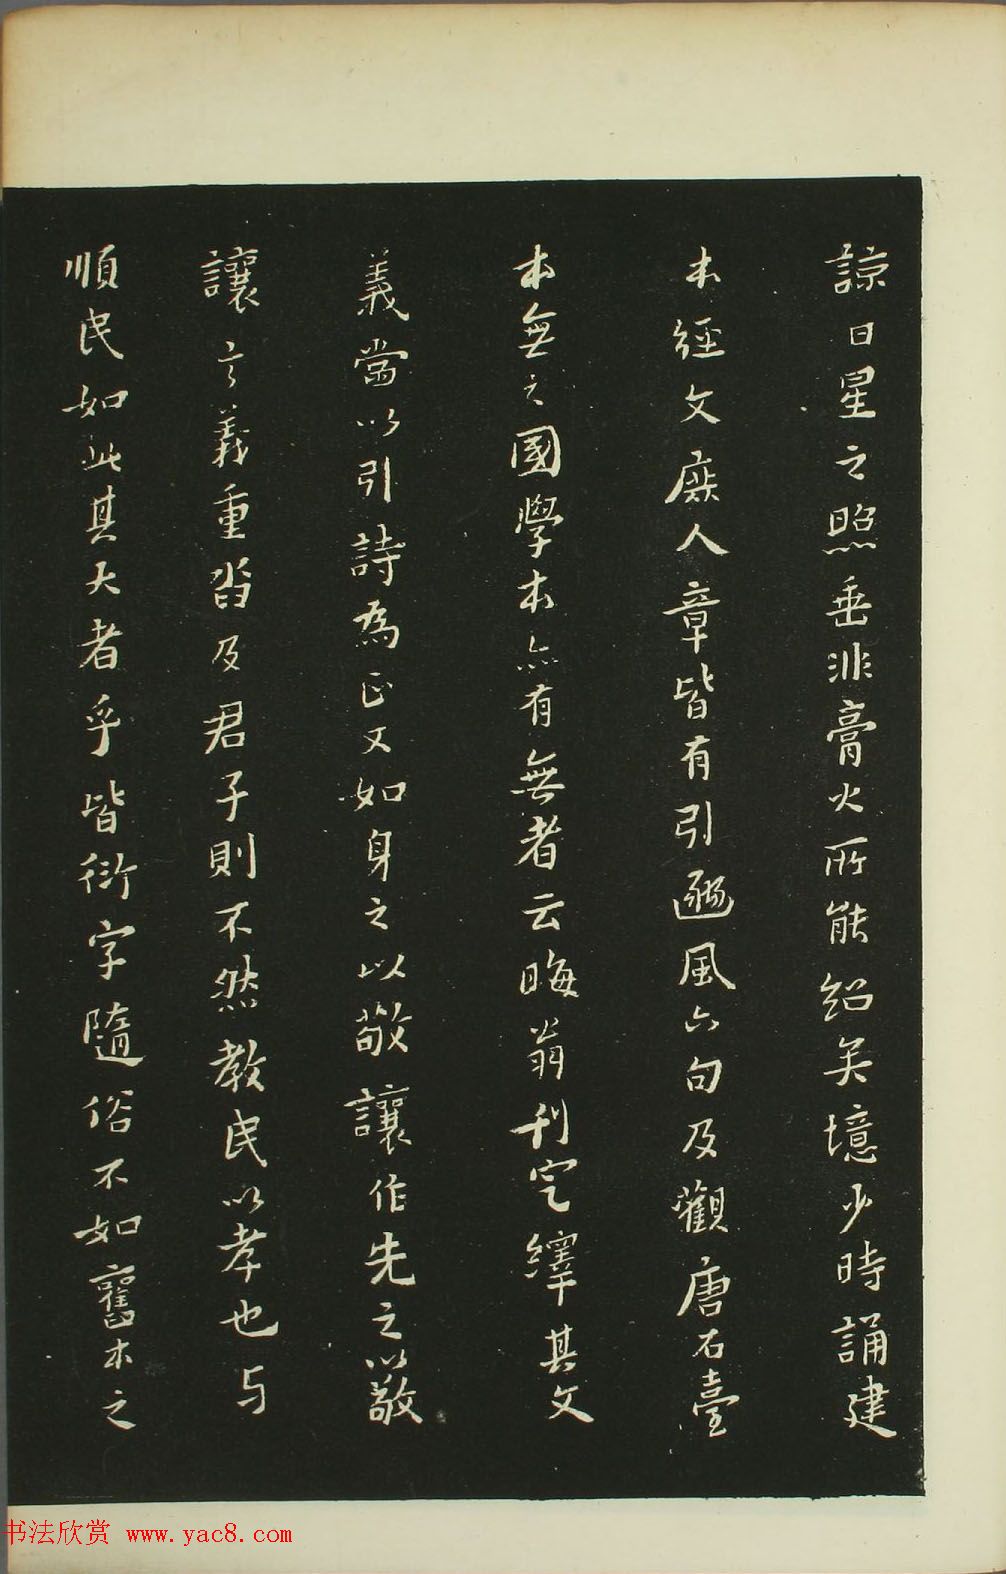 諒日星之照垂非膏火所能紹矣境少時誦建
本經文庶人章皆有引豳風六句及觀唐石臺
本無之國學本亦有無者云晦翁刊定繹其文
義當以引詩為正文如身之以敬讓作先之以敬
讓言義重沓及君子則不然教民以孝也与
順民如此其大者乎皆衍字隨俗不如舊本之
书法欣赏 www.yac8.com